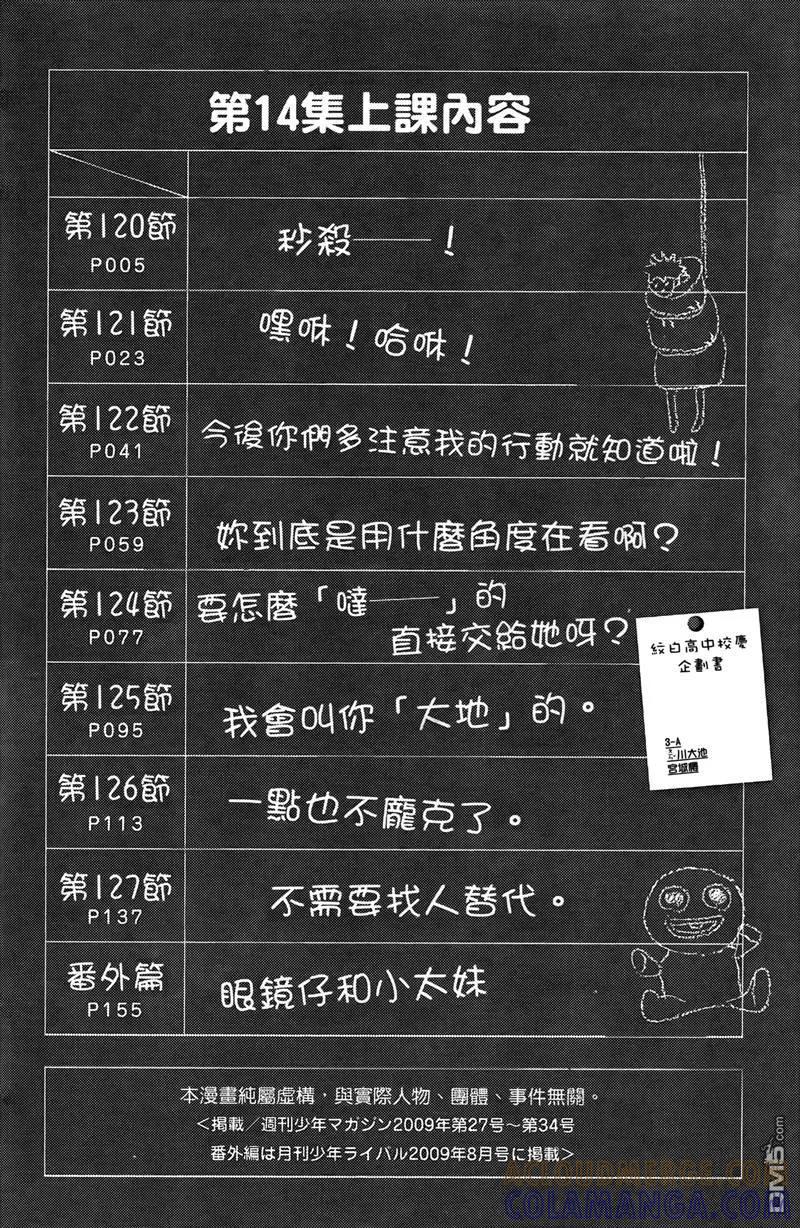 第14集上課內容
第120節
P005
秒殺——！
第121節
P023
嘿咻！哈咻！
第122節
P041
今後你們多注意我的行動就知道啦！
第123節
P059
妳到底是用什麼角度在看啊？
第124節
P077
要怎麼「噠——」的
直接交給她呀？
第125節
P095
我會叫你「大地」的。
第126節
P113
一點也不龐克了。
第127節
P137
不需要找人替代。
番外篇
P155
眼鏡仔和小太妹
紋白高中校慶
企劃書
3-A
川大池
宮城
本漫畫純屬虛構，與實際人物、團體、事件無關。
<掲載／週刊少年マガジン2009年第27号～第34号
番外編は月刊少年ライバル2009年8月号に掲載>
ACLOUDMERGE.COM
COLAMANGA.COM
DM5.com